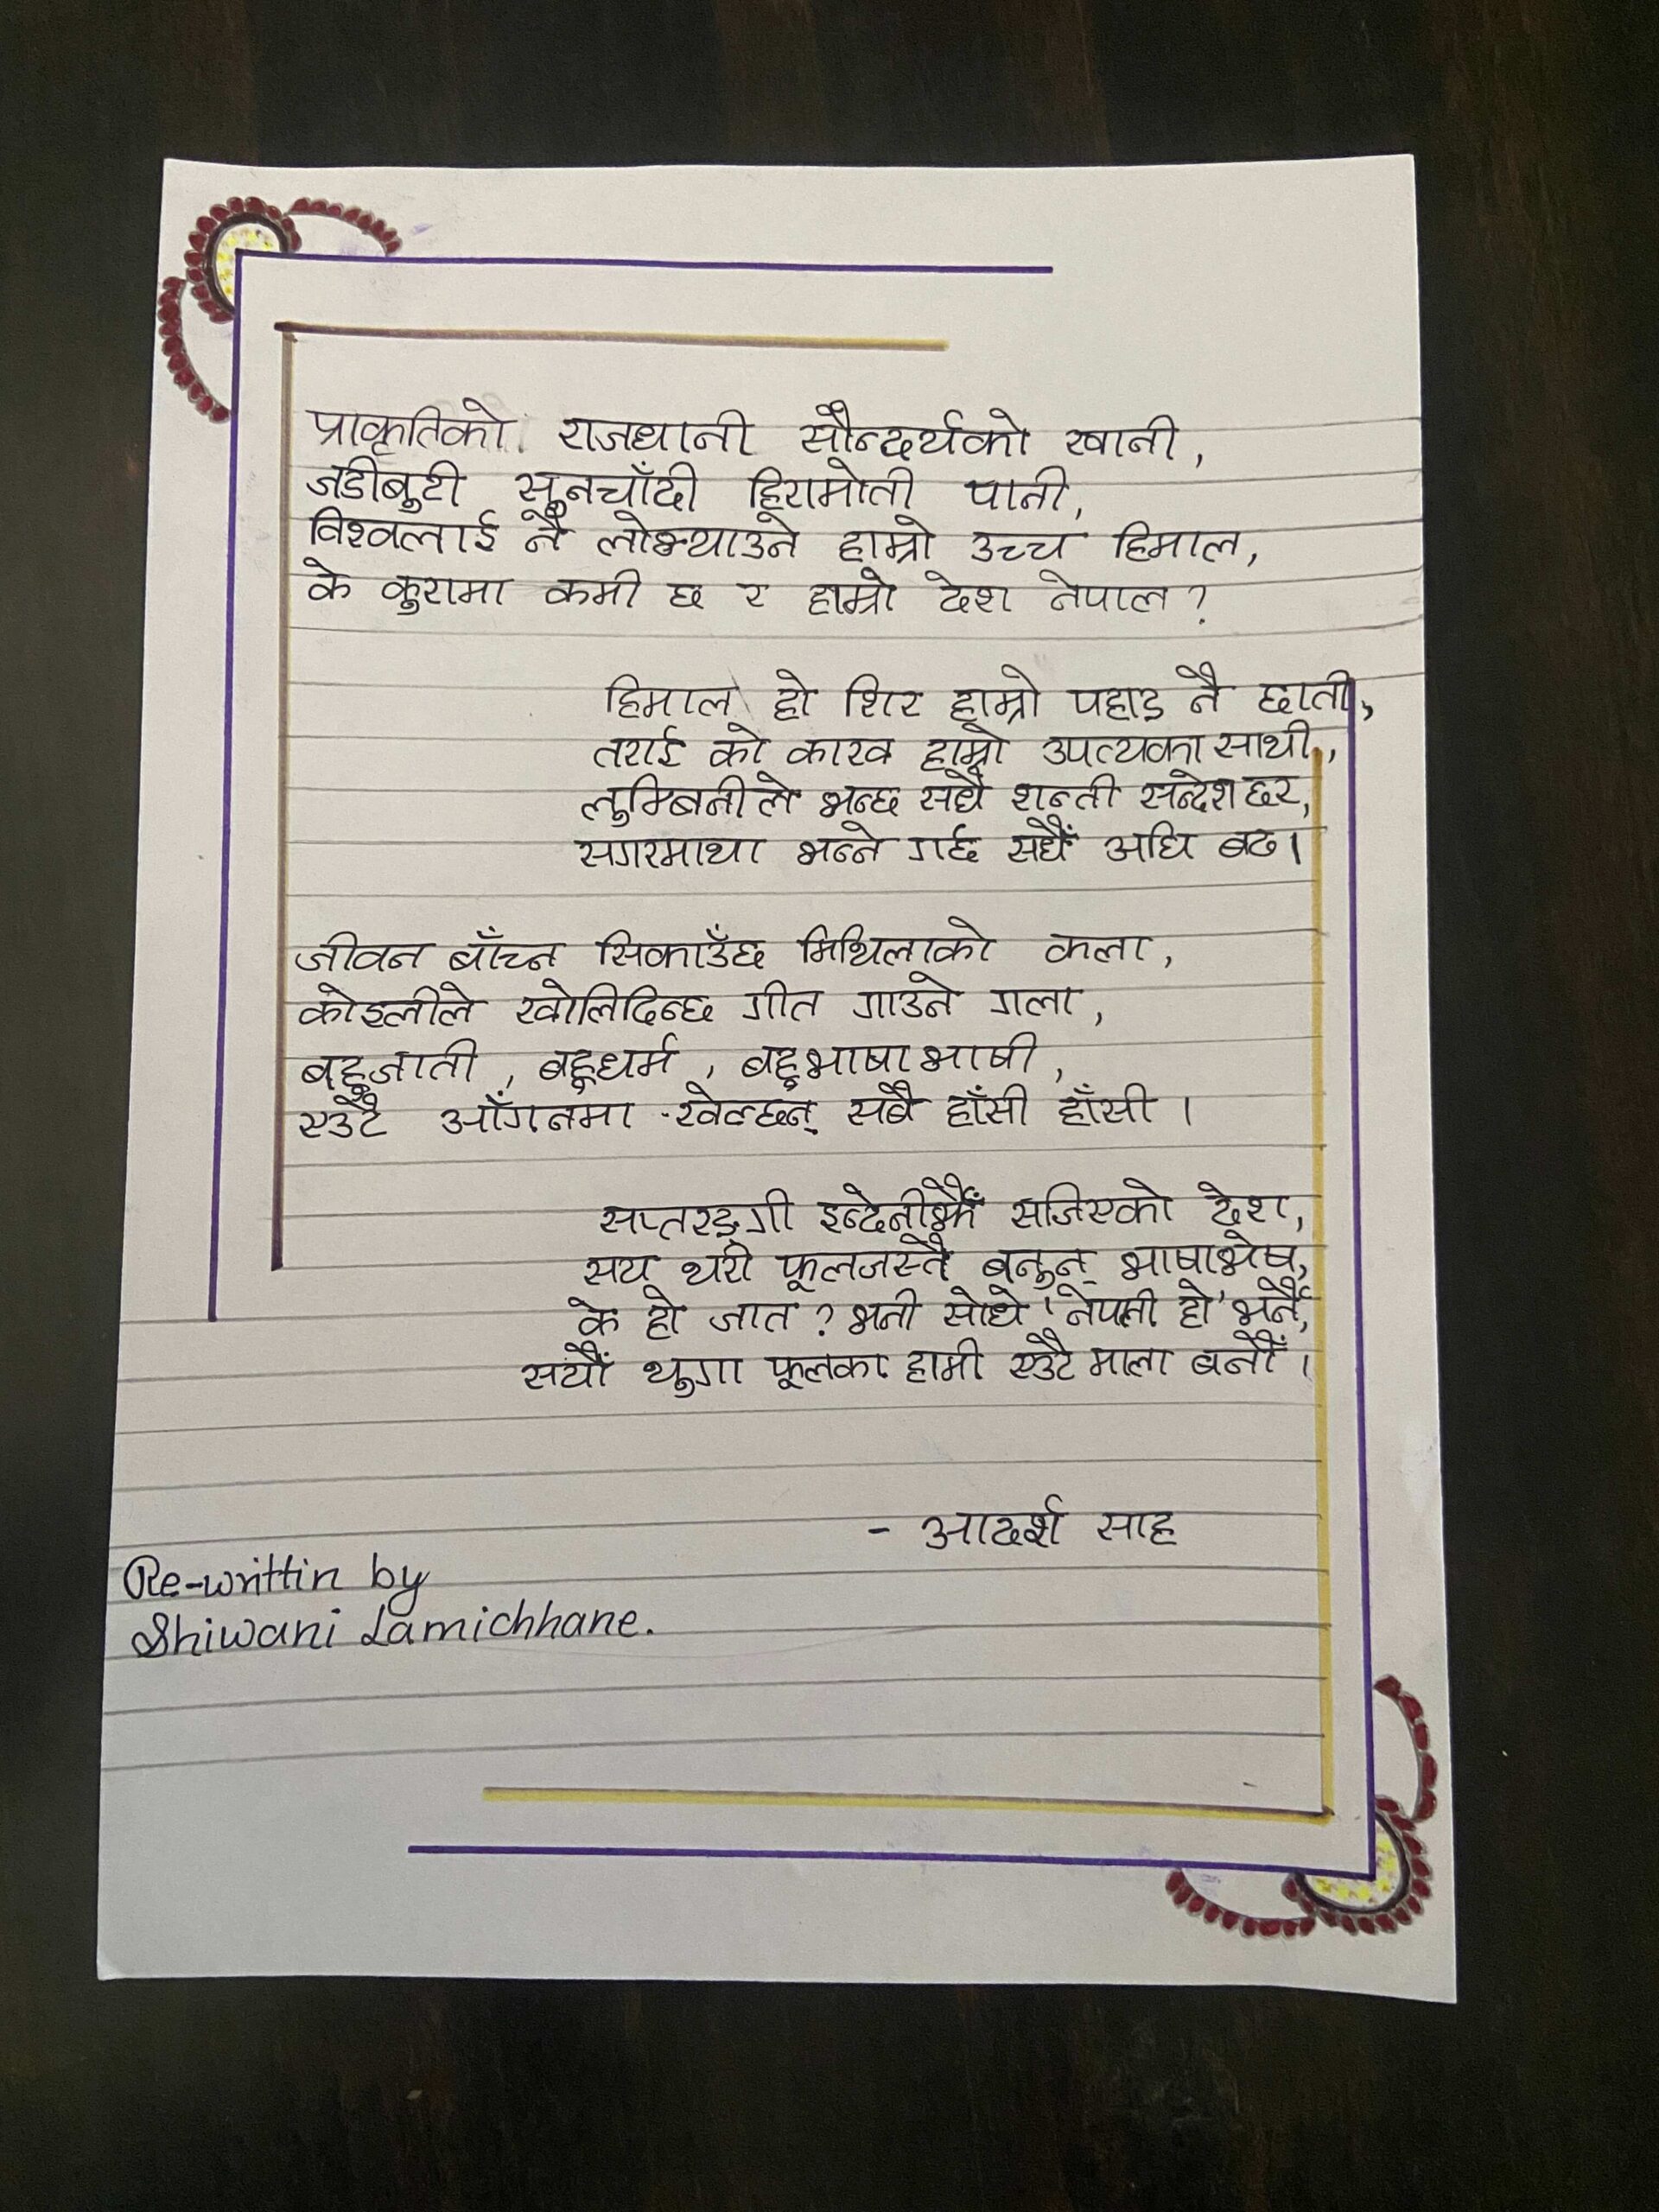 प्राकृतिको राजधानी सौन्दर्यको खानी,
जडीबुटी सुनचाँदी हिरामोती पानी,
विश्वलाई नै लोभ्याउने हाम्रो उच्च हिमाल,
के कुरामा कमी छ र हाम्रो देश नेपाल ?
हिमाल हो शिर हाम्रो पहाड नै छाती,
तराई को काख हाम्रो उपत्यका साथी,
लुम्बिनीले भन्छ सधै शन्ती सन्देश छर,
सगरमाथा भन्ने गर्छ सधैँ अघि बढ।
जीवन बाँच्न सिकाउँछ मिथिलाको कला,
कोइलीले खोलिदिन्छ गीत गाउने गला,
बहुजाती, बहुधर्म, बहुभाषाभाषी,
एउटै आँगनमा खेल्छन् सबै हाँसी हाँसी ।
सप्तरङ्गी इन्देनीझैँ सजिएको देश,
सय थरी फूलजस्तै बनुन् भाषाभेष,
के हो जात ? भनी सोधे 'नेपाली हो' भनेँ,
सयौं थुगा फूलका हामी एउटै माला बनौँ ।
- आदर्श साह
Re-writtin by
Shiwani Lamichhane.